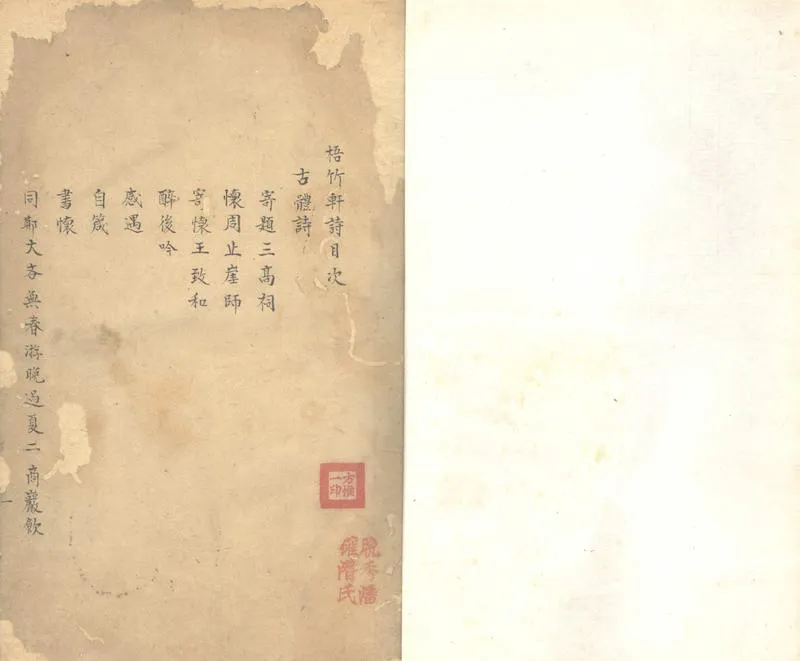 梧竹軒詩目次
古體詩
寄題三高祠
懷周止崖師
寄懷王致和
醉後吟
感遇
自箴
書懷
同鄭大呇無春游晚過夏二商巖飲
方惟一印
潘氏